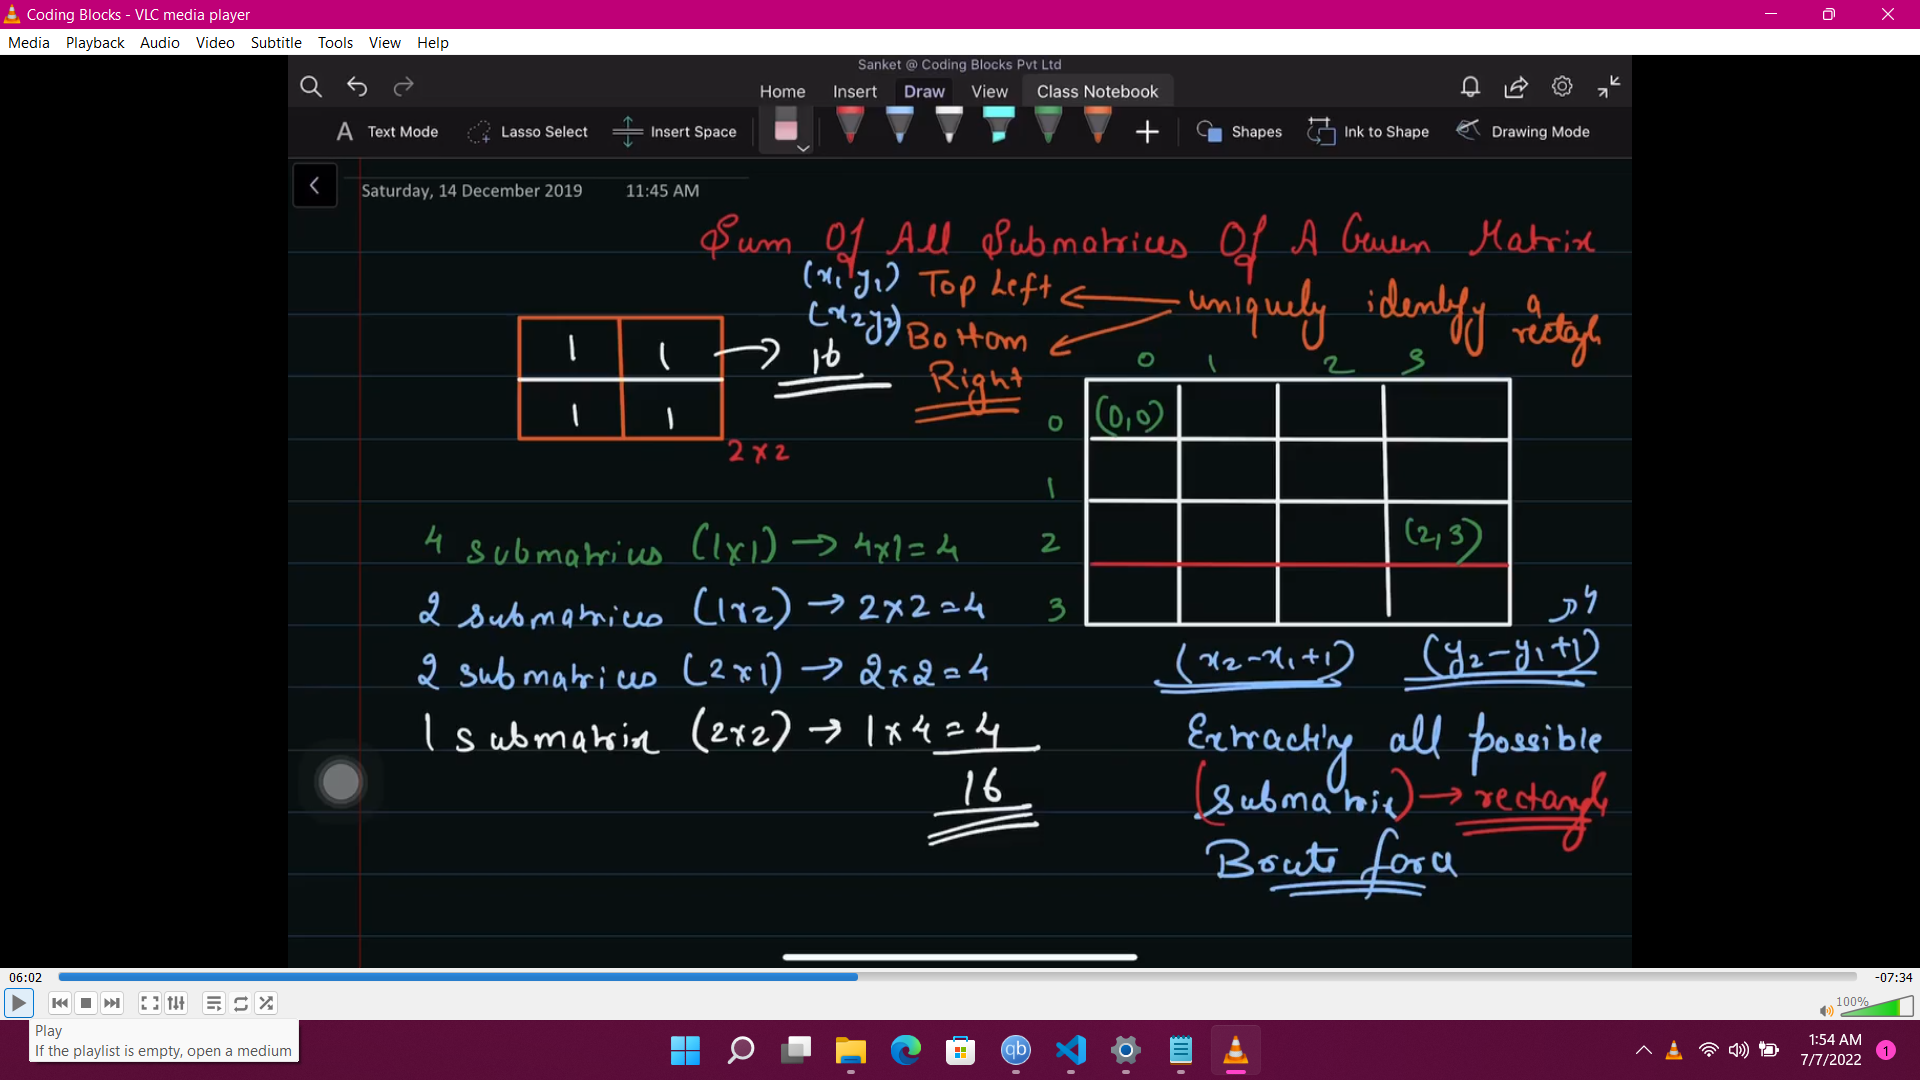 Coding Blocks - VLC media player
Media Playback Audio Video Subtitle Tools View Help
Sanket @ Coding Blocks Pvt Ltd
Home Insert Draw View Class Notebook
Text Mode Lasso Select Insert Space Shapes Ink to Shape Drawing Mode
Saturday, 14 December 2019 11:45 AM
Sum Of All Submatrices Of A Given Matrix
(x1 y1) Top Left
(x2 y2) Bottom Right
uniquely identify a
1 1
1 1
16
2 x 2
0 1 2 3
0 (0,0)
1
2 (2,3)
3
4 submatrices (1x1) → 4x1=4
2 submatrices (1x2) → 2x2=4
2 submatrices (2x1) → 2x2=4
1 submatrix (2x2) → 1x4=4
16
4
(x2-x1+1) (y2-y1+1)
Extracting all possible
(submatrix) → rectangle
06:02 -07:34
100%
Play
If the playlist is empty, open a medium
qb
1:54 AM
7/7/2022
1